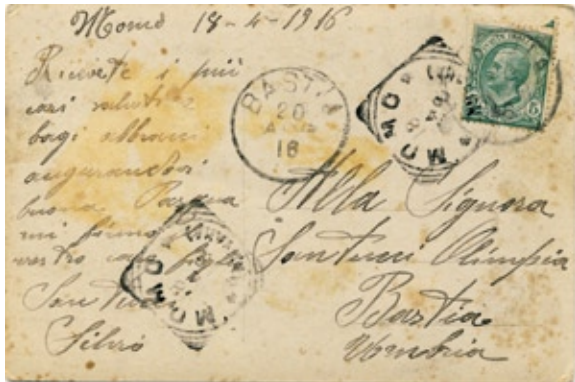 Momo 18-4-1916
Ricevete i più
cari saluti e
bagi abbracci
augurandovi
buona Pasqua
mi firmo
vostro caro figlio
Santucci
Silvio
BASTIA
20
16
MOMO
(NOVARA)
5
Alla Signora
Santucci Olimpia
Bastia
Umbria
MOMO
(NOVARA)